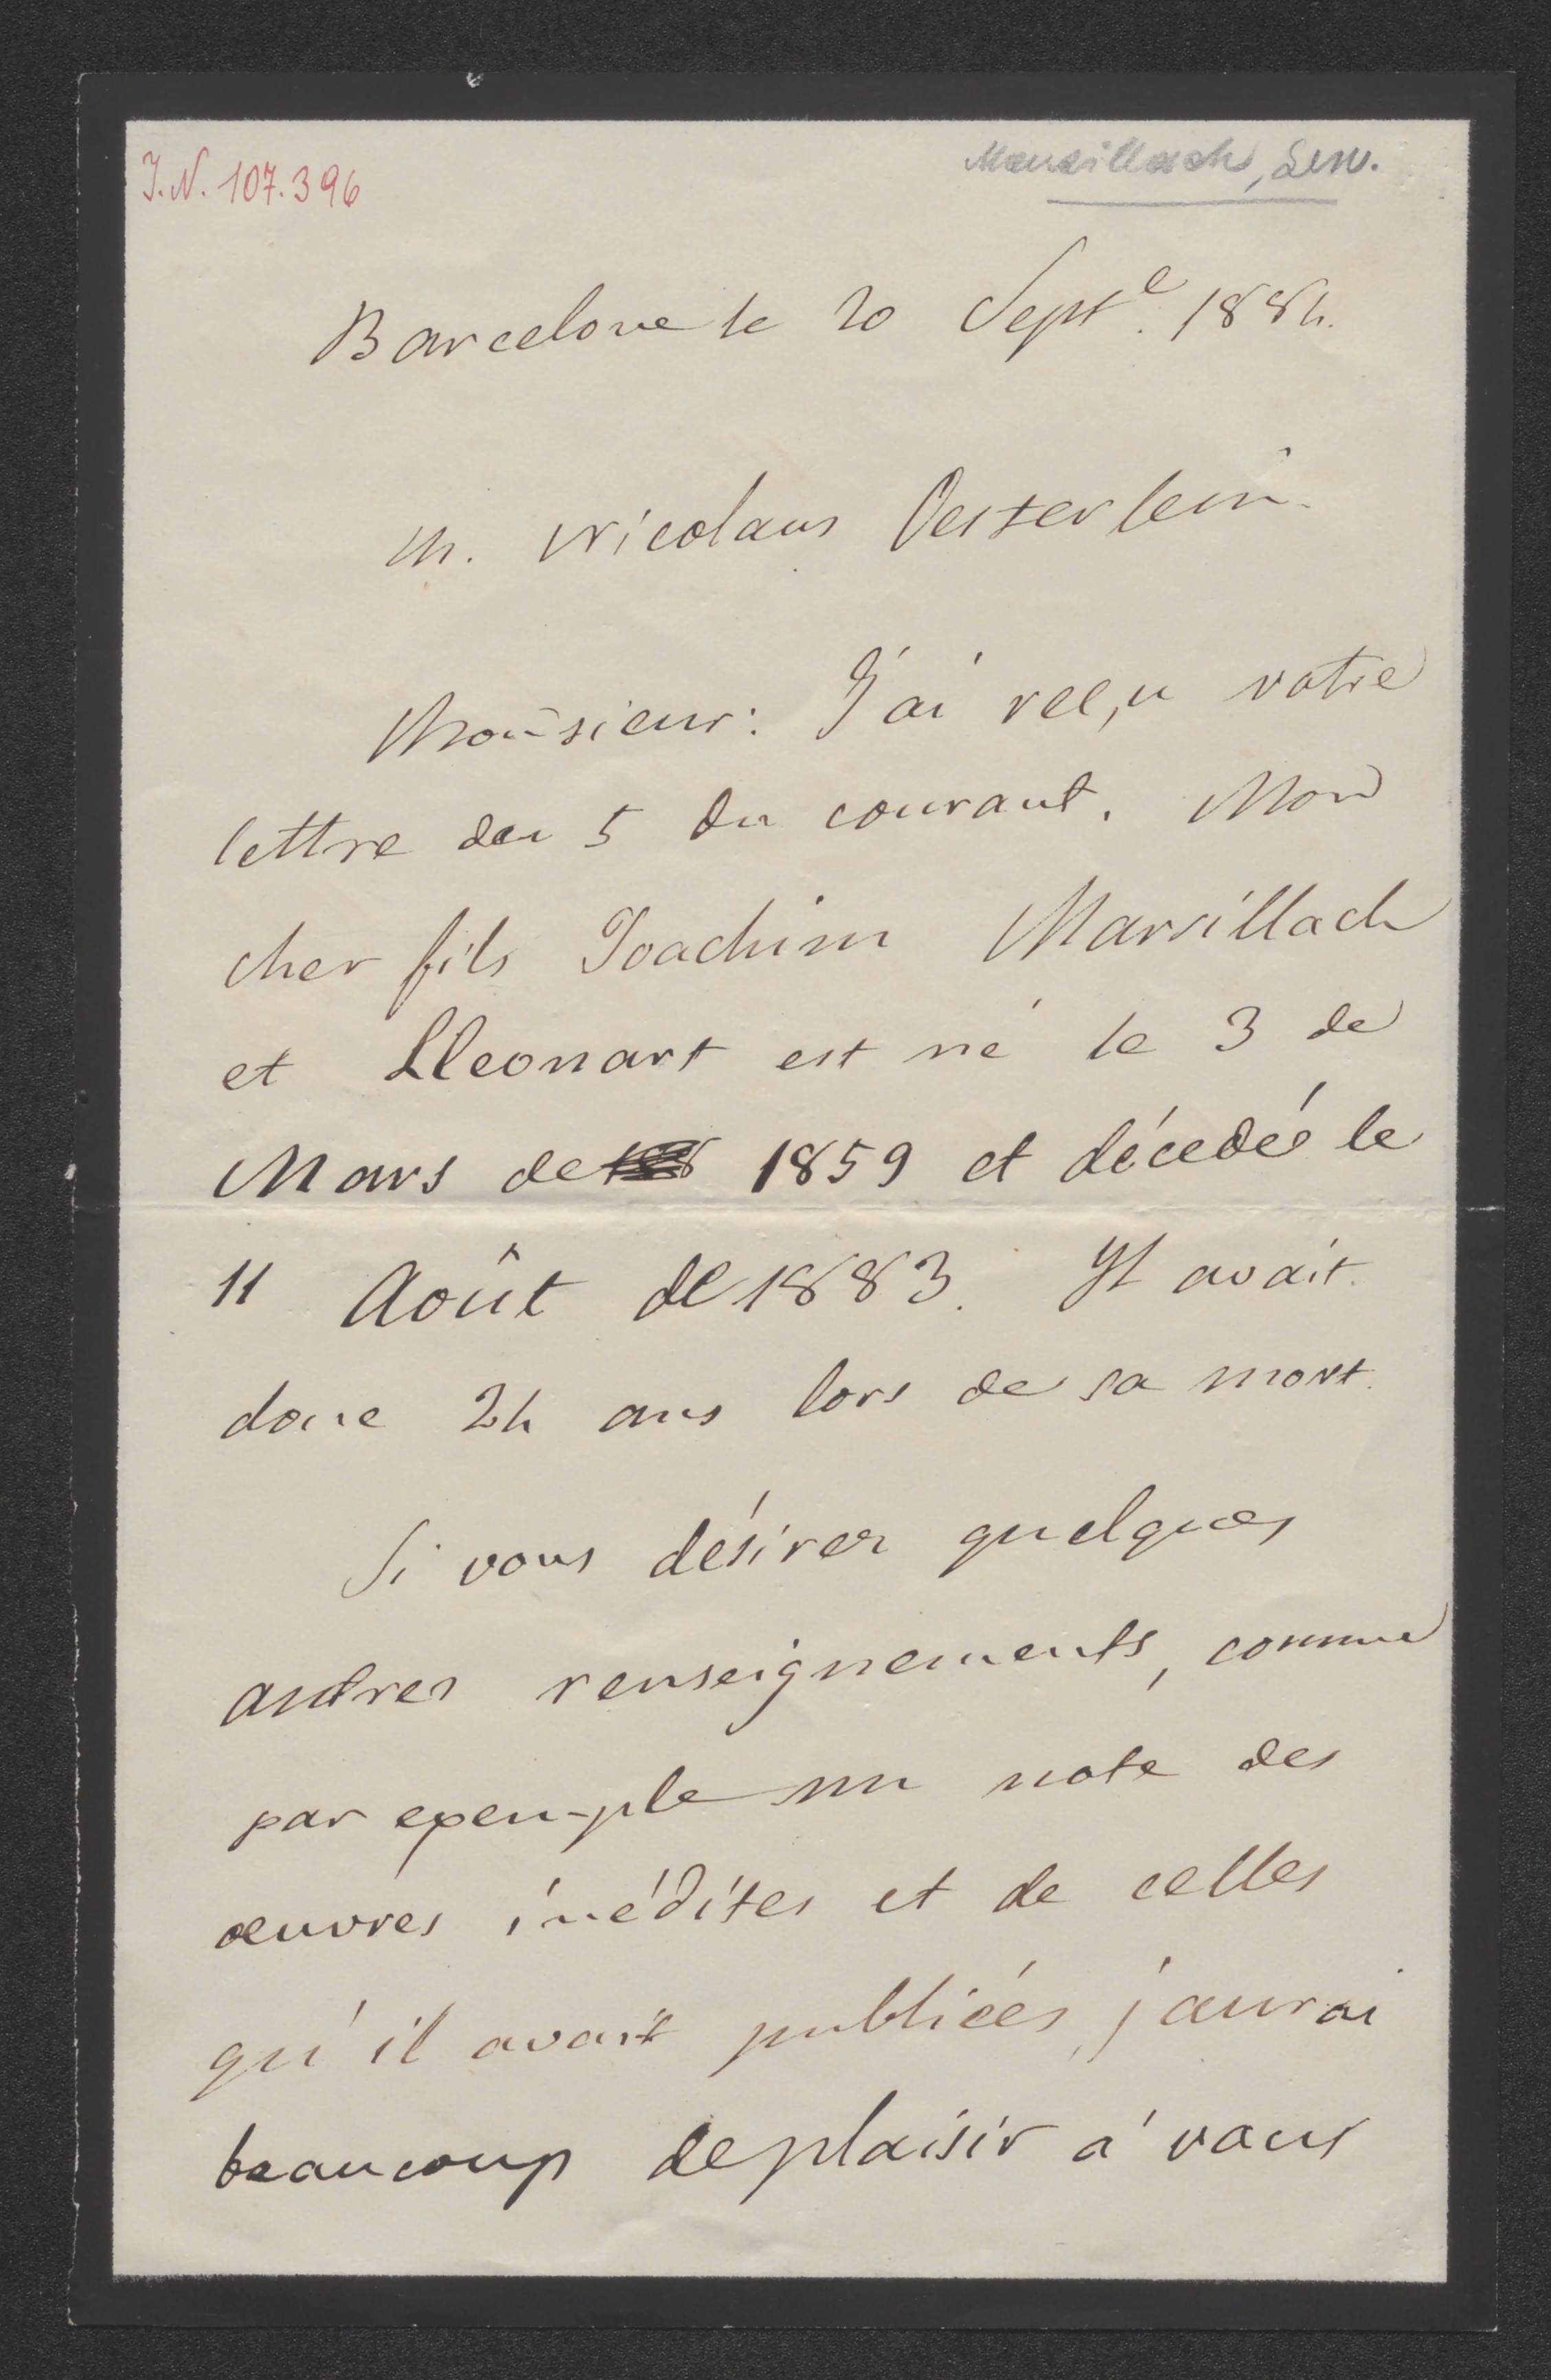 J.N. 107.396
Marsillach, Sen.
Barcelone le 20 Septe. 1884.
M. Nicolaus Oesterlein.
Monsieur: J'ai reçu votre
lettre du 5 du courant. Mon
cher fils Joachim Marsillach
et Lleonart est né le 3 de
Mars de 1859 et décedé le
11 Août de 1883. Il avait
donc 24 ans lors de sa mort.
Si vous désirez quelques
autres renseignements, comme
par exemple un note des
œuvres inédites et de celles
qu'il avait publiées, j'aurai
beaucoup de plaisir á vous